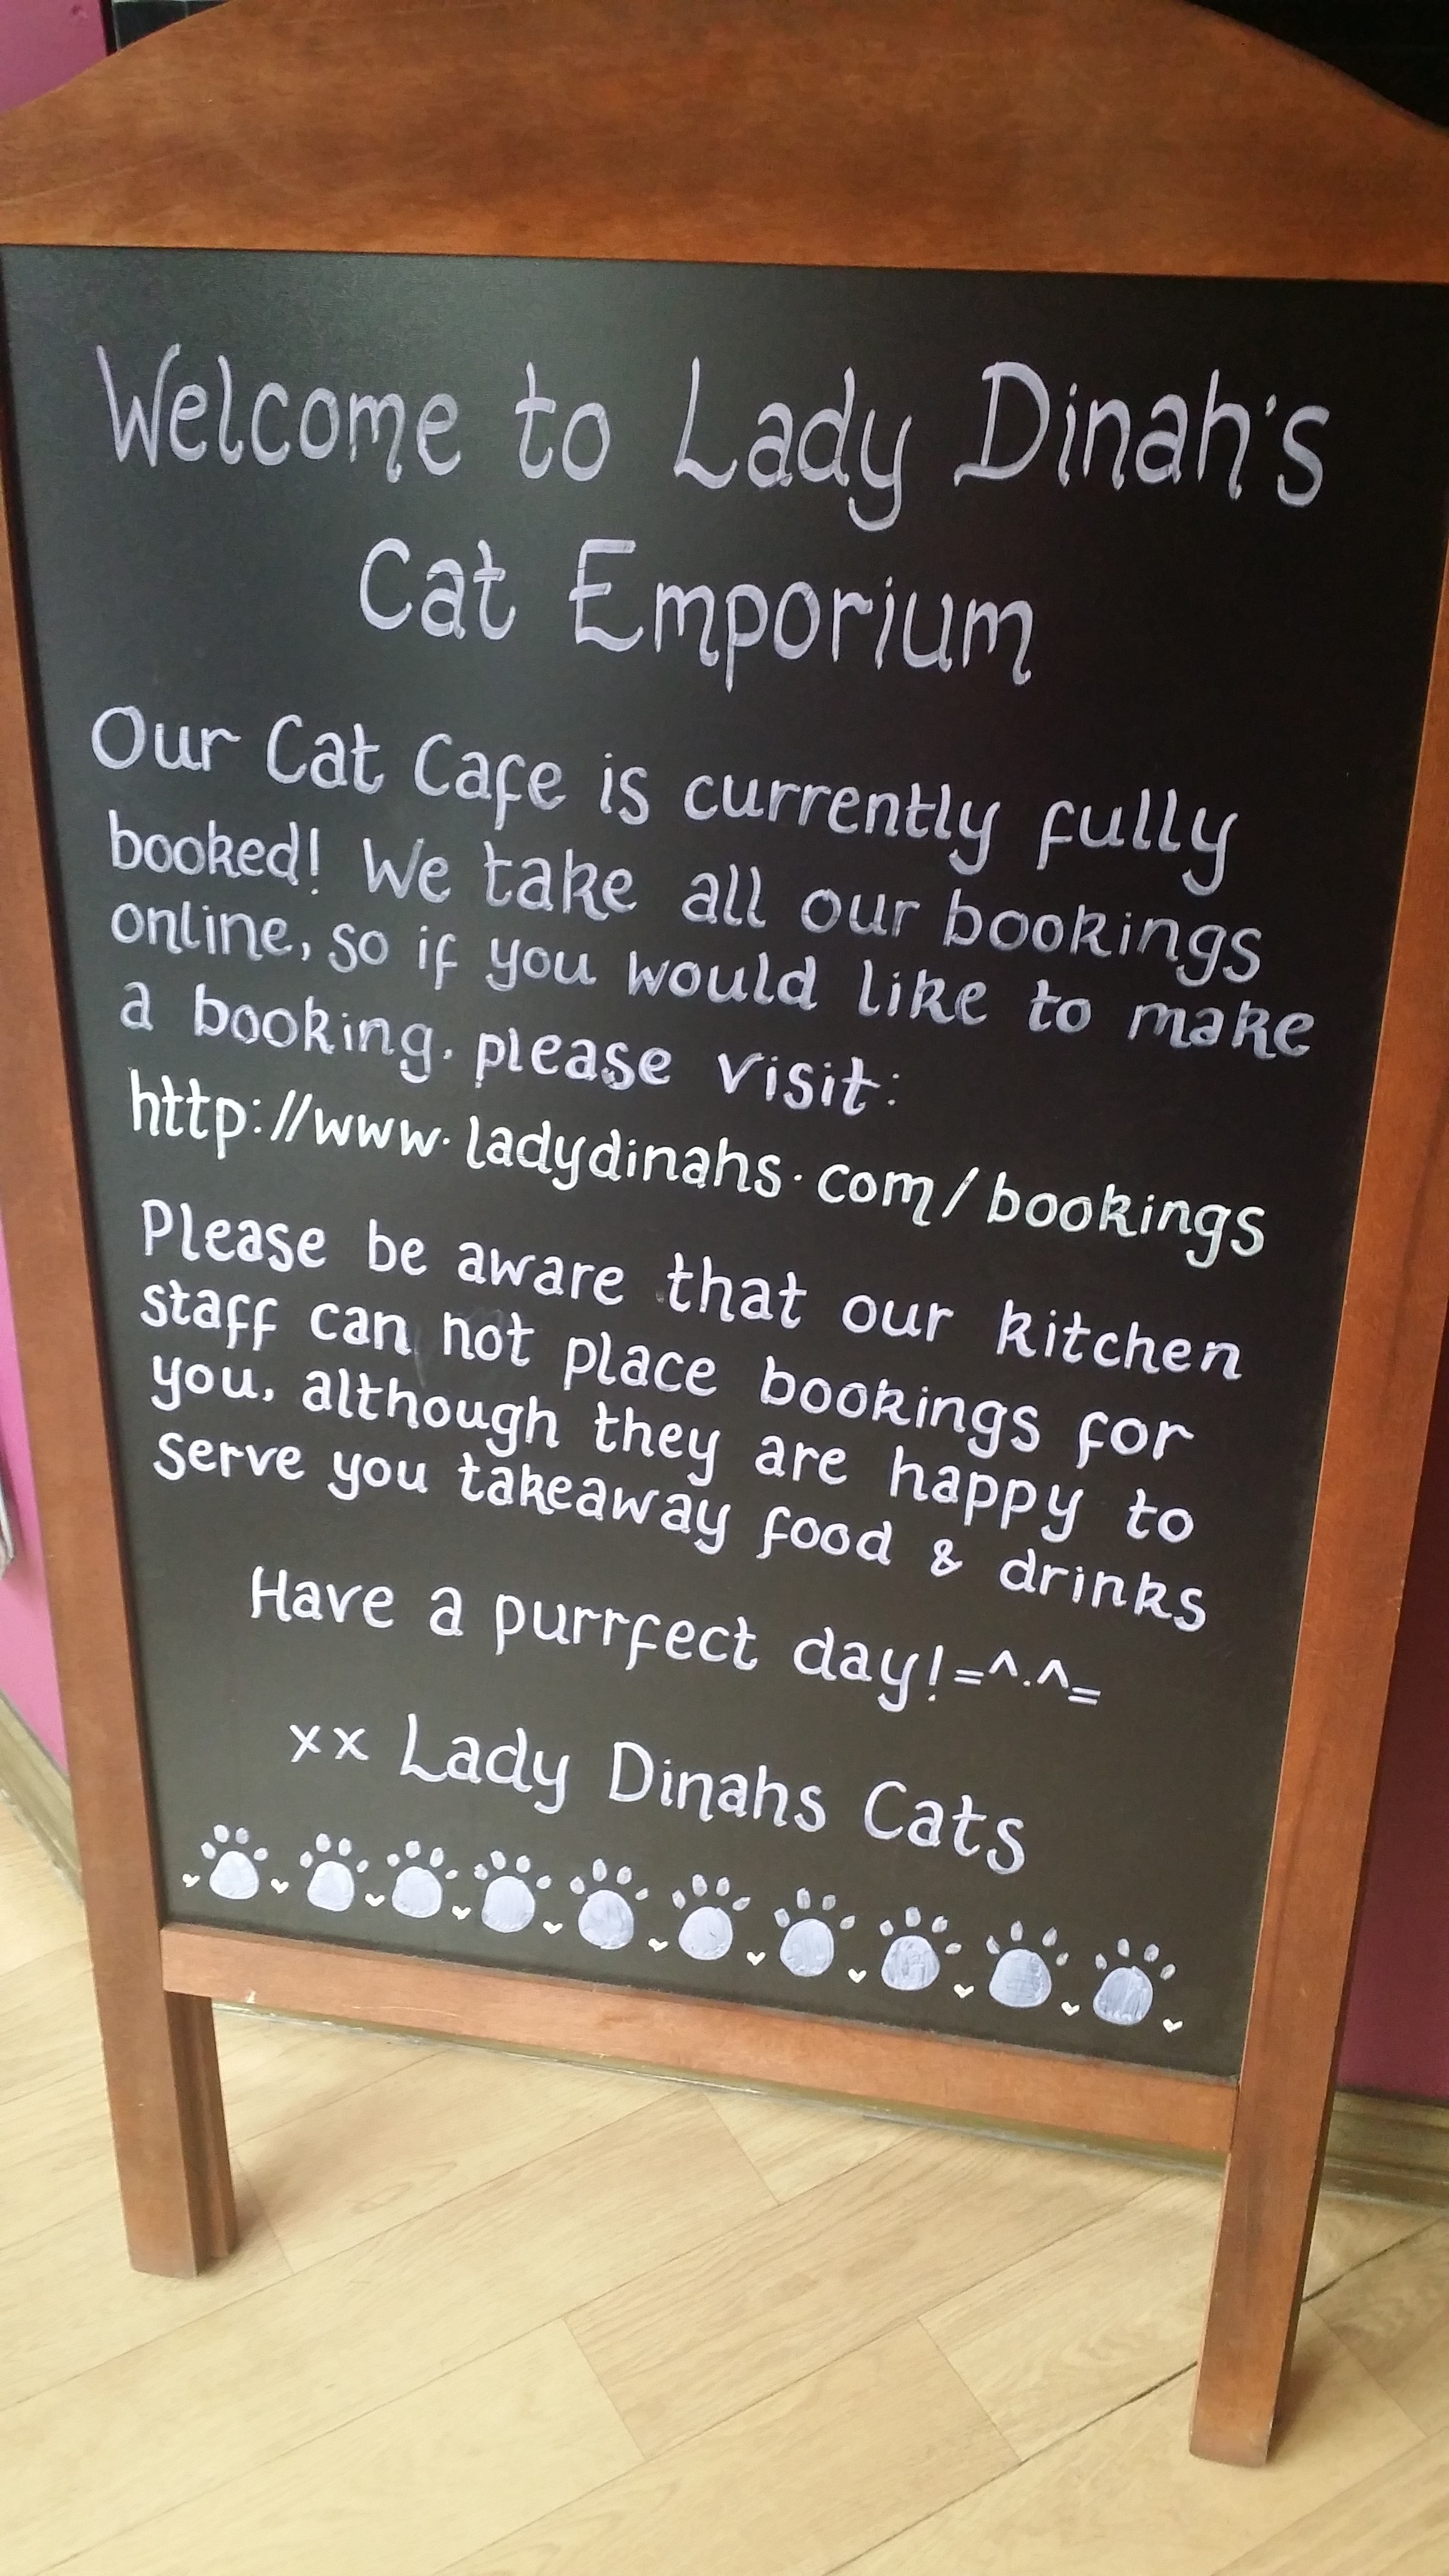 Welcome to Lady Dinah's
Cat Emporium
Our Cat Cafe is currently fully
booked! We take all our bookings
online, so if you would like to make
a booking, please visit:
http://www.ladydinahs.com/bookings
Please be aware that our kitchen
staff can not place bookings for
you, although they are happy to
serve you takeaway food & drinks
Have a purrfect day! =^.^=
xx Lady Dinahs Cats